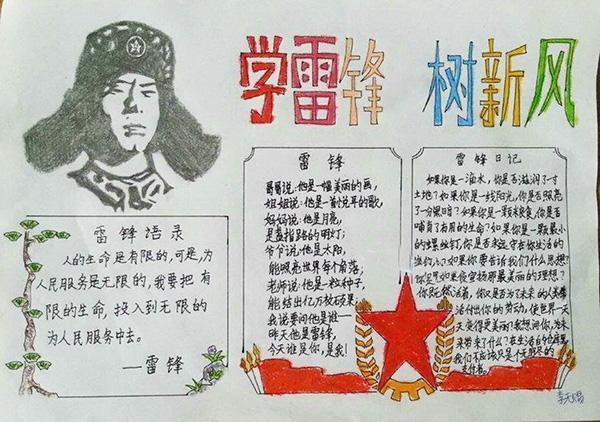 学雷锋 树新风
雷锋语录
人的生命是有限的,可是,为
人民服务是无限的,我要把有
限的生命,投入到无限的
为人民服务中去。
—雷锋
雷锋
哥哥说:他是一幅美丽的画,
姐姐说:他是一首说平的歌,
妈妈说:他是月亮,
是盏指路的明灯;
爷爷说:他是太阳,
能照亮世界每个角落;
老师说:他是一粒种子,
能结出亿万颗硕果;
我说要问他是谁—
昨天他是雷锋,
今天谁是你,是我!
雷锋日记
如果你是一滴水,你是否滋润了一寸
土地?如果你是一线阳光,你是否照亮
了一分黑暗?如果你是一颗粮食,你是否
哺育了有用的生命?如果你是一颗最小
的螺丝钉,你是否永远守在你生活的
岗位上?如果你要告诉我们什么思想
你是否在日夜宣扬那最美丽的理想?
你既然活着,你又是否为了未来的人类
生活付出你的劳动,使世界一天
天变得更美丽?我想问你,为未
来带来了什么?在生活的仓库里,
我们不应该只是个无尽的
支付者。